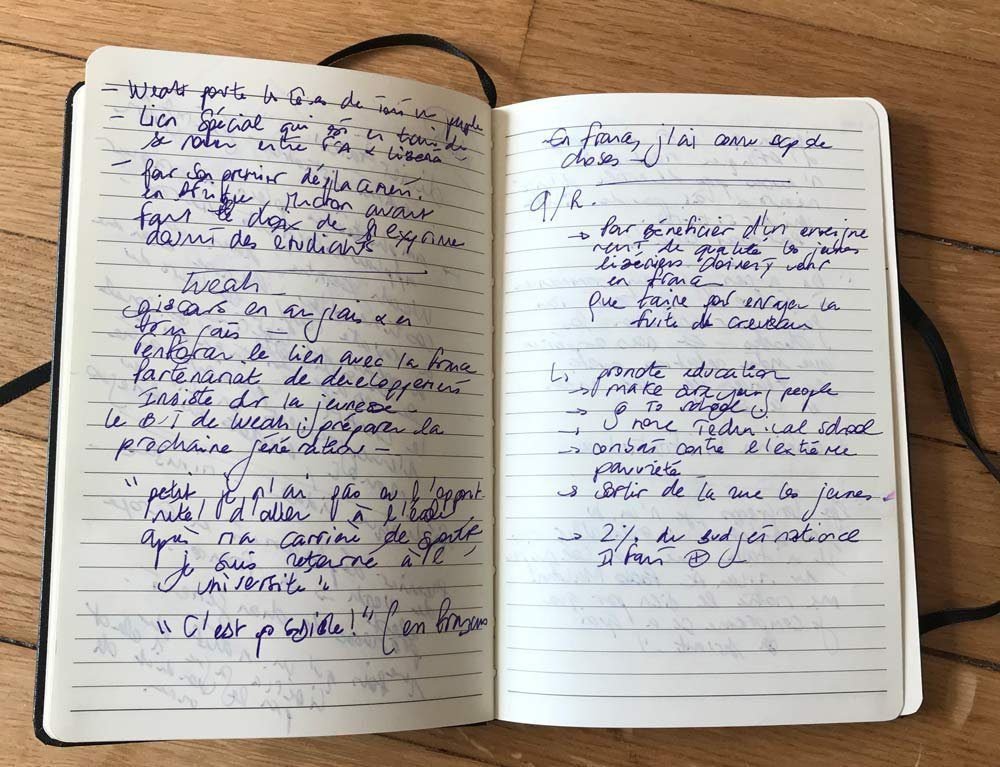 - Weah porte les de tout un peuple
- Lien spécial qui est en train de
se nouer entre et Libéria
- Pour son premier déplacement
en Afrique, Macron avait
fait le choix de s'exprimer
devant des étudiants
Weah
discours en anglais & en
français -
renforcer le lien avec la france
Partenariat de développement
Insiste sur la jeunesse -
le de Weah : préparer la
prochaine génération -
"petit je n'ai pas eu l'opport-
unité d'aller à l'école
après ma carrière de sportif
je suis retourné à l'
université"
"C'est possible!" (en français
- En france, j'ai connu bcp de
choses -
Q/R.
→ Pour bénéficier d'un enseigne
ment de qualité les jeunes
libériens doivent venir
en france
Que faire pour enrayer la
fuite de cerveaux
↳ promote education
→ make sure young people
→ go to school
→ more Technical school
→ combat contre l'extrême
pauvreté
→ sortir de la rue les jeunes
→ 2% du budget national
Il faut ⊕